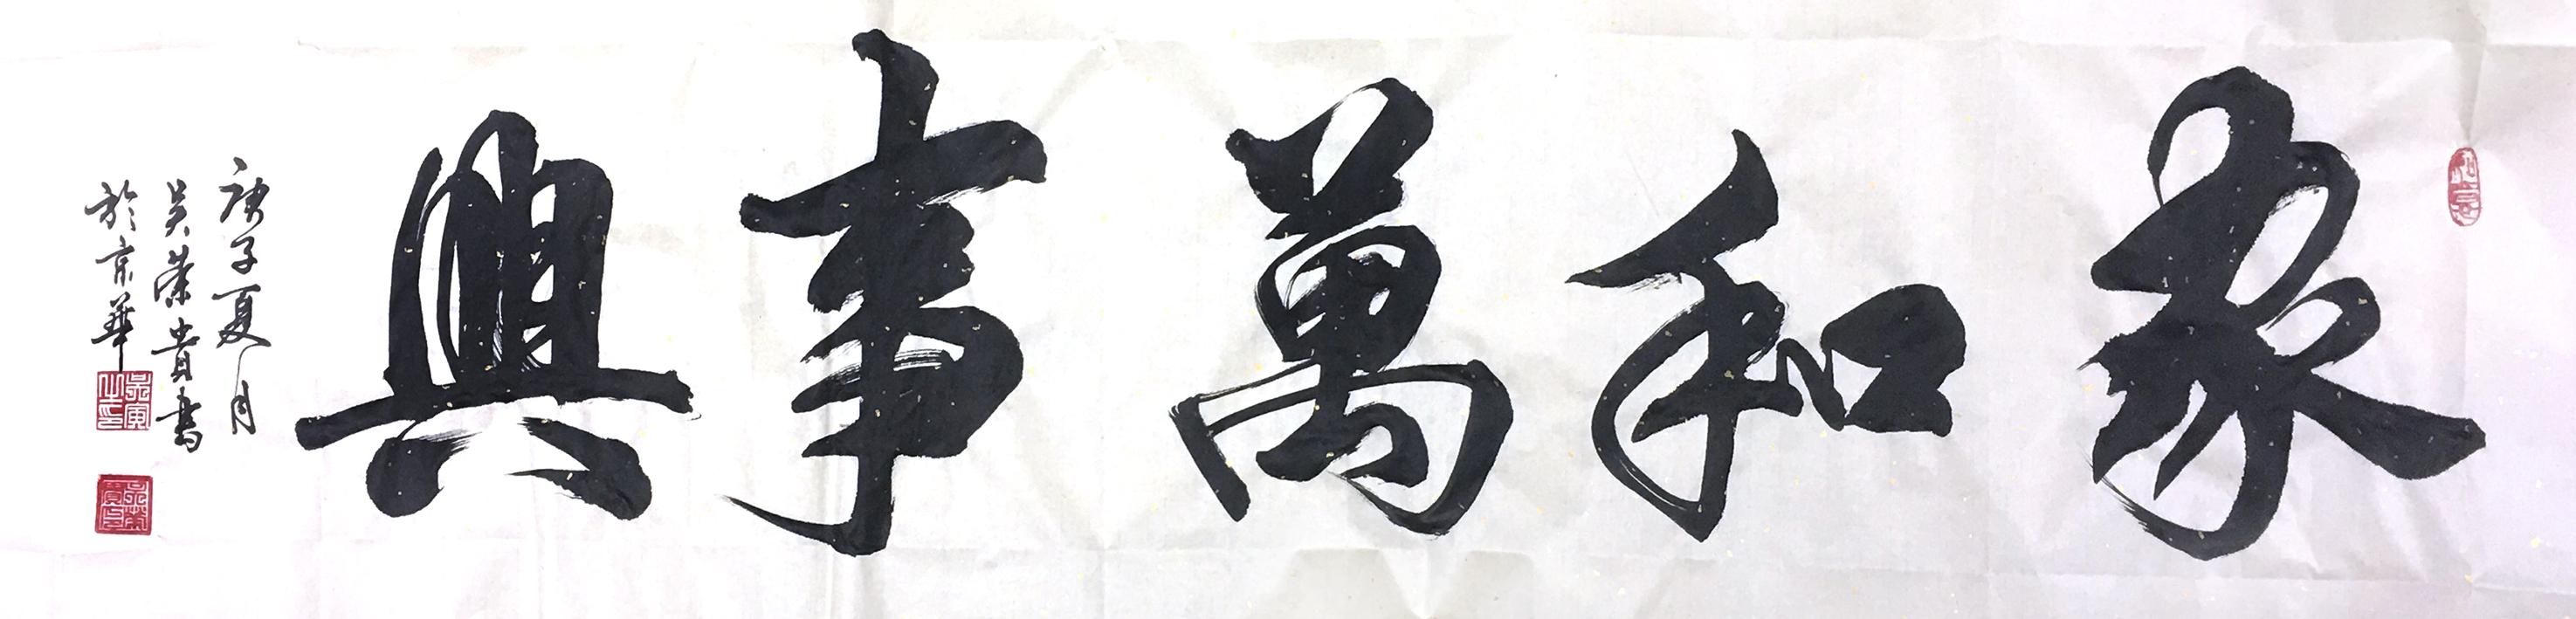 家和萬事興
庚子夏月
吴荣貴書
於京華